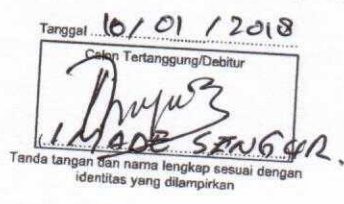 Tanggal 16/01/2018
Calon Tertanggung/Debitur
I MADE SENGUR.
Tanda tangan dan nama lengkap sesuai dengan
identitas yang dilampirkan